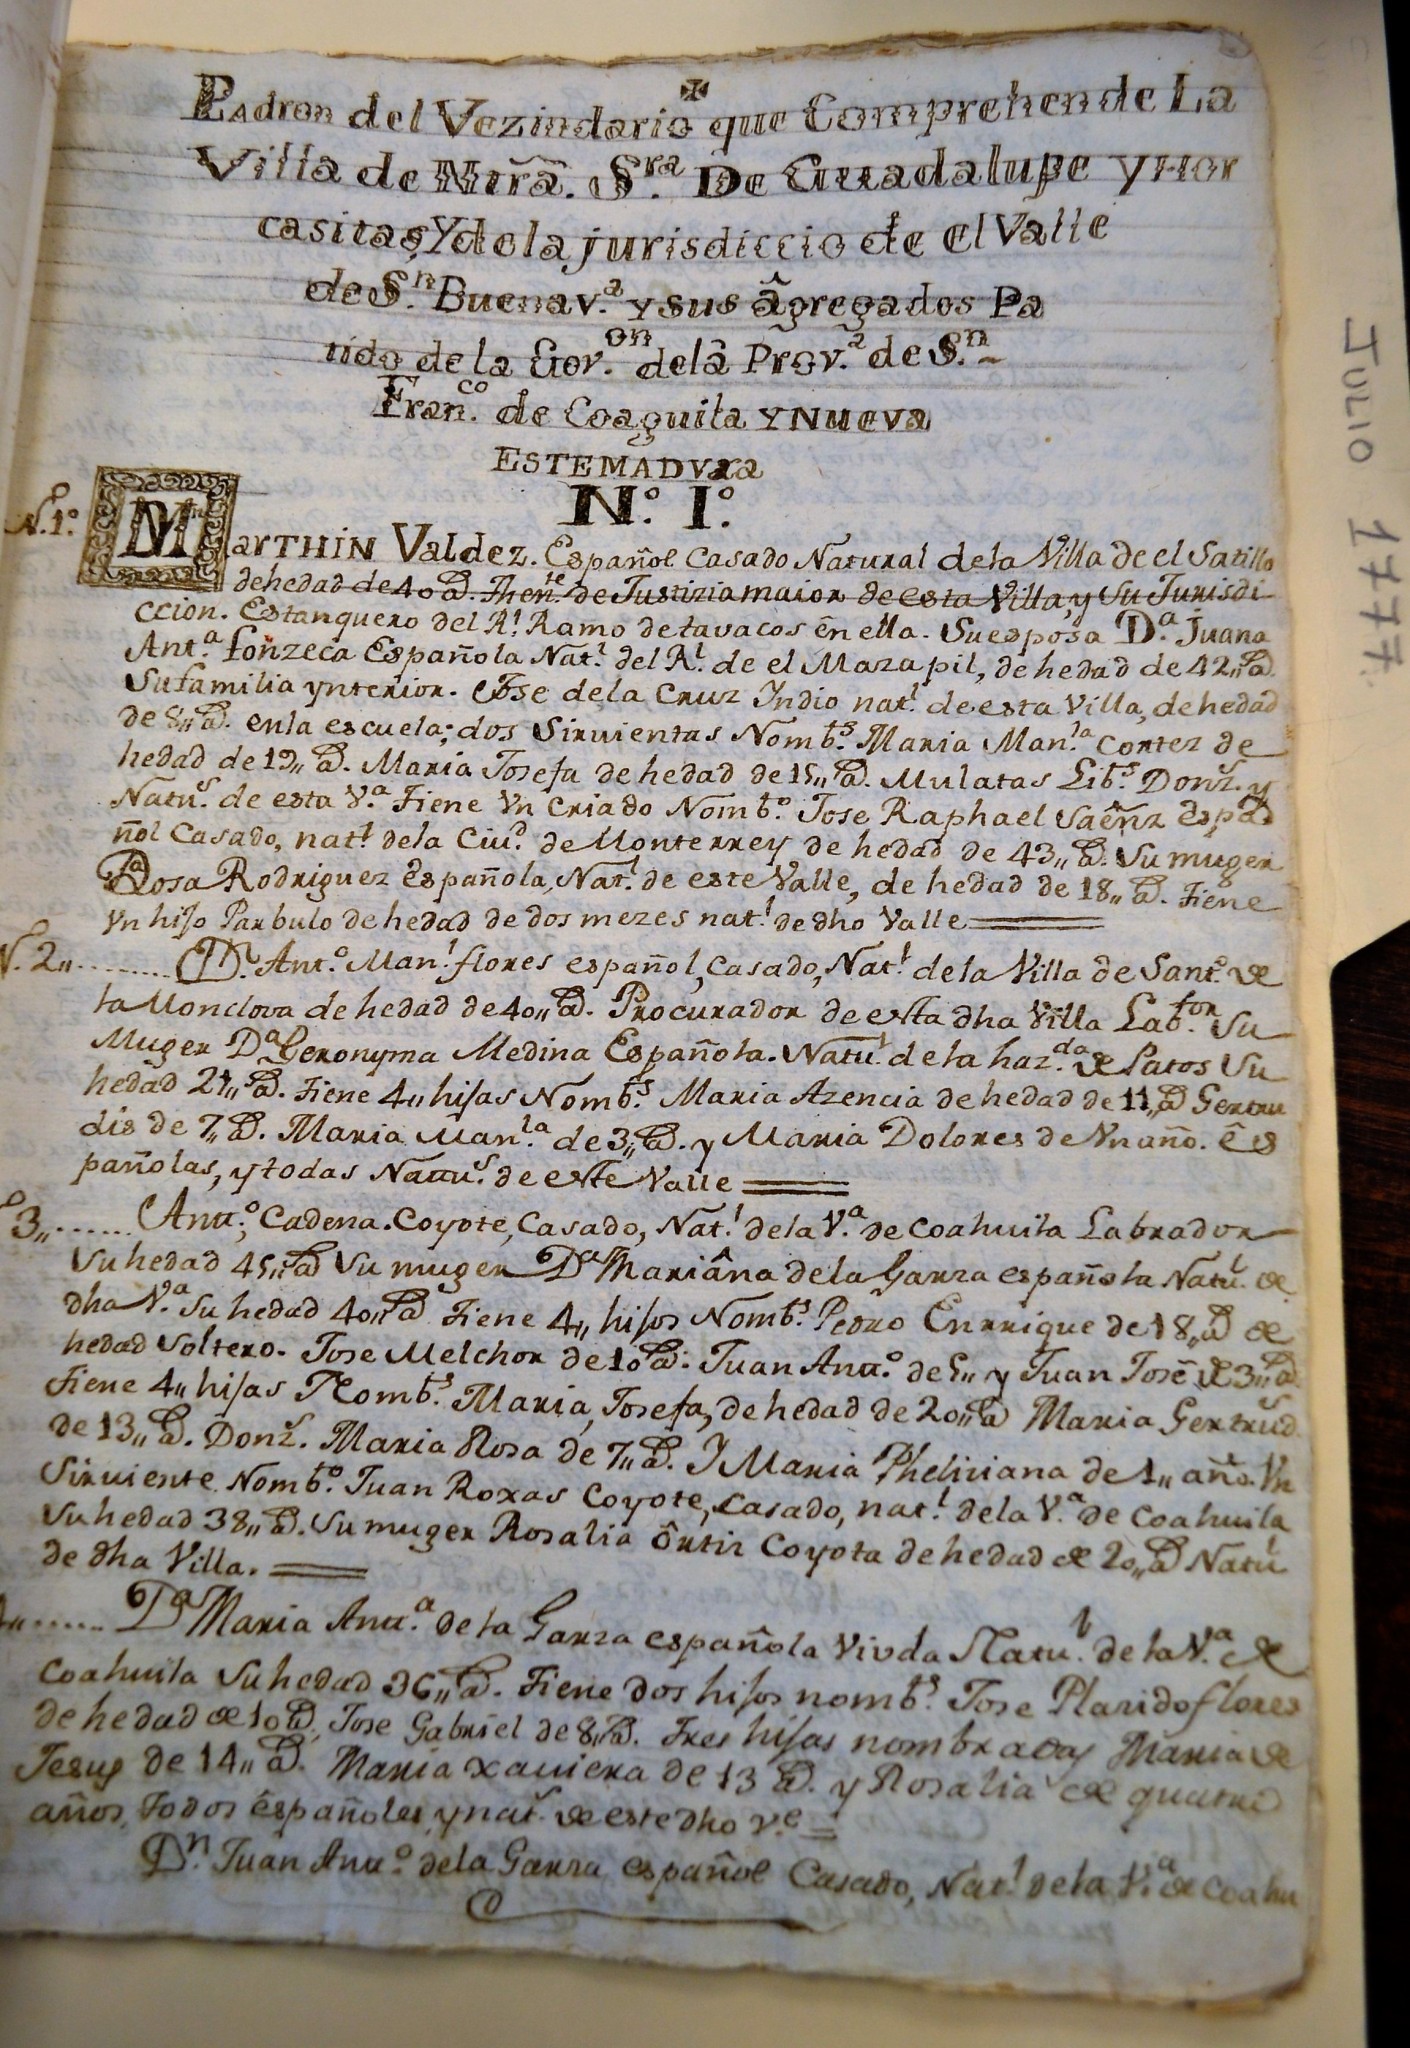 Padron del Vezindario que Comprehende La
Villa de Ntrã. S.ra De Guadalupe y Hor
casitas, Y de la jurisdiccio de el Valle
de S.n Buenav.a y sus âgregados Pa
tido de la Gov.on de lâ Prov.a de S.n
Fran.co de Coaguila Y NUEVa
ESTEMADVRa
N.o I.o
N. 1.o MarTHIN Valdez. Español Casado Natural de la Villa de el Satillo
de hedad de 40 a.s Then.te de Justizia maior de esta Villa, y su Jurisdi
ccion. Estanquero del R.l Ramo de tavacos en ella. Su esposa D.a Juana
Ant.a Fonzeca Española Nat.l del R.l de el Mazapil, de hedad de 42,, a.s
Su familia ynterior. Jose de la Cruz Indio nat.l de esta Villa, de hedad
de 8,, a.s en la escuela; dos Sirvientas Nomb.s Maria Man.la Cortez de
hedad de 19,, a.s Maria Josefa de hedad de 15,, a.s Mulatas Lib.s Donz.s y
Natu.s de esta V.a Tiene Yn criado Nomb.o Jose Raphael Saênz Espa
ñol Casado, nat.l de la Ciu.d de Monterrey de hedad de 43,, a.s Su muger
Rosa Rodriguez Española, Nat.l de este Valle, de hedad de 18,, a.s Tiene
Yn hijo Parbulo de hedad de dos mezes nat.l de dho Valle
N. 2,, D.n Ant.o Man.l flores español, Casado, Nat.l de la Villa de Sant.o de
la Monclova de hedad de 40,, a.s Procurador de esta dha Villa Lab.or Su
Muger D.a Geronyma Medina Española. Natu.l de la haz.da de Patos Su
hedad 27,, a.s Tiene 4,, hijas Nomb.s Maria Azencia de hedad de 11,, a.s Gertru
dis de 7,, a.s Maria Man.la de 3,, a.s y Maria Dolores de Yn año. ês
pañolas, y todas Natu.s de este Valle
3,, Antt.o Cadena. Coyote, Casado, Nat.l de la V.a de Coahuila Labrador
Su hedad 45,, a.s Su muger D.a Mariâna de la Garza española Natu.l de
dha V.a Su hedad 40,, a.s Tiene 4,, hijos Nomb.s Pedro Enrrique de 18,, a.s de
hedad Soltero. Jose Melchor de 10 a.s Juan Antt.o de 5,, y Juan José de 3,, a.s
Tiene 4,, hijas Nomb.s Maria, Josefa, de hedad de 20,, a.s Maria Gertrud.s
de 13,, a.s Donz.s Maria Rosa de 7,, a.s Y Maria Pheliciana de 1,, año. Yn
Sirviente Nomb.o Juan Roxas Coyote, Casado, nat.l de la V.a de Coahuila
Su hedad 38,, a.s Su muger Rosalia Ôrtiz Coyota de hedad de 20,, a.s Natu.l
de dha Villa.
D.a Maria Antt.a de la Garza española Viuda Natu.l de la V.a de
Coahuila Su hedad 36,, a.s Tiene dos hijos nomb.s Jose Plasido flores
de hedad de 10 a.s, Jose Gabriel de 8,, a.s Tres hijas nombradas Maria de
Jesus de 14,, a.s Maria xaviera de 13 a.s y Rosalia de quatro
años, todos españoles, y nat.s de este dho V.e
D.n Juan Antt.o de la Garza español Casado, Nat.l de la V.a de Coahu
JULIO 1777